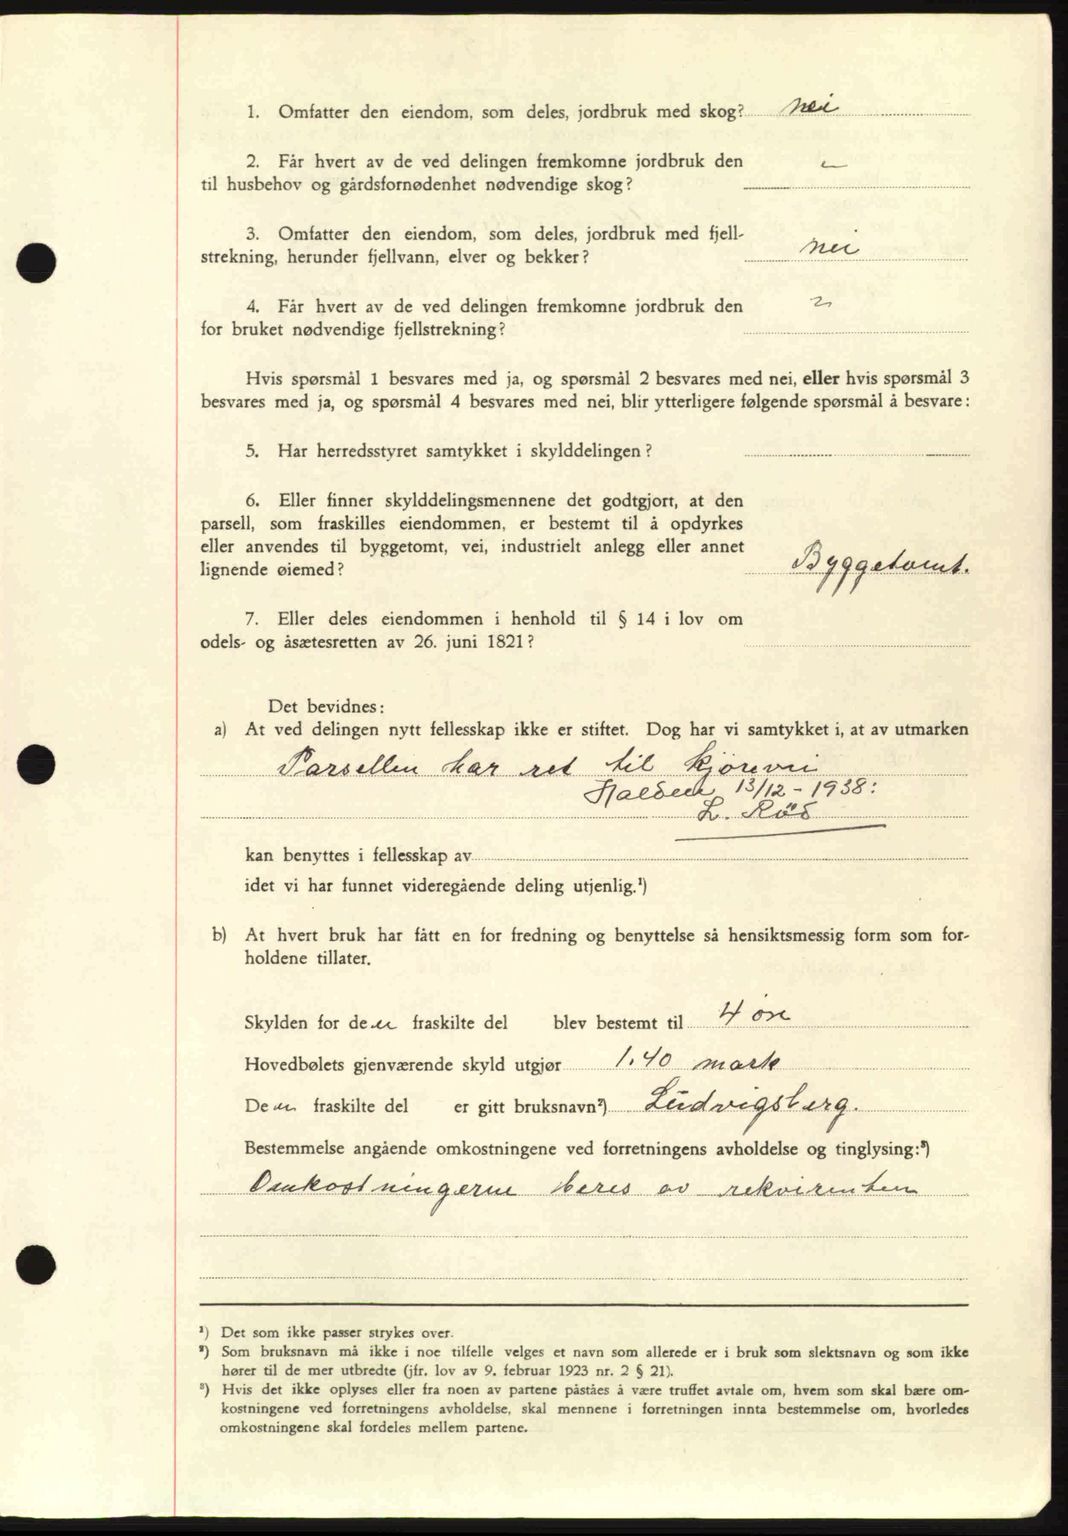 1. Omfatter den eiendom, som deles, jordbruk med skog? nei
2. Får hvert av de ved delingen fremkomne jordbruk den
til husbehov og gårdsfornødenhet nødvendige skog?
3. Omfatter den eiendom, som deles, jordbruk med fjell-
strekning, herunder fjellvann, elver og bekker? nei
4. Får hvert av de ved delingen fremkomne jordbruk den
for bruket nødvendige fjellstrekning?
Hvis spørsmål 1 besvares med ja, og spørsmål 2 besvares med nei, eller hvis spørsmål 3
besvares med ja, og spørsmål 4 besvares med nei, blir ytterligere følgende spørsmål å besvare:
5. Har herredsstyret samtykket i skylddelingen?
6. Eller finner skylddelingsmennene det godtgjort, at den
parsell, som fraskilles eiendommen, er bestemt til å opdyrkes
eller anvendes til byggetomt, vei, industrielt anlegg eller annet
lignende øiemed? Byggetomt.
7. Eller deles eiendommen i henhold til § 14 i lov om
odels- og åsætesretten av 26. juni 1821?
Det bevidnes:
a) At ved delingen nytt fellesskap ikke er stiftet. Dog har vi samtykket i, at av utmarken
Parsellen har ret til kjörevei
Halden 13/12 - 1938:
L. Röd
kan benyttes i fellesskap av
idet vi har funnet videregående deling utjenlig.¹)
b) At hvert bruk har fått en for fredning og benyttelse så hensiktsmessig form som for-
holdene tillater.
Skylden for den fraskilte del blev bestemt til 4 öre
Hovedbølets gjenværende skyld utgjør 1.40 mark
Den fraskilte del er gitt bruksnavn²) Ludvigsberg.
Bestemmelse angående omkostningene ved forretningens avholdelse og tinglysing:³)
Omkostningerne beres av rekvirenten
¹) Det som ikke passer strykes over.
²) Som bruksnavn må ikke i noe tilfelle velges et navn som allerede er i bruk som slektsnavn og som ikke
hører til de mer utbredte (jfr. lov av 9. februar 1923 nr. 2 § 21).
³) Hvis det ikke oplyses eller fra noen av partene påståes å være truffet avtale om, hvem som skal bære om-
kostningene ved forretningens avholdelse, skal mennene i forretningen innta bestemmelse om, hvorledes
omkostningene skal fordeles mellem partene.